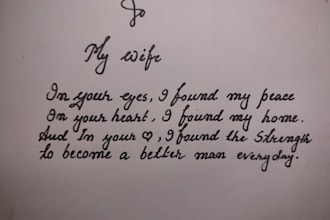 To
My wife
In your eyes, I found my peace
In your heart, I found my home.
And In your ♡, I found the Strength
to become a better man everyday.